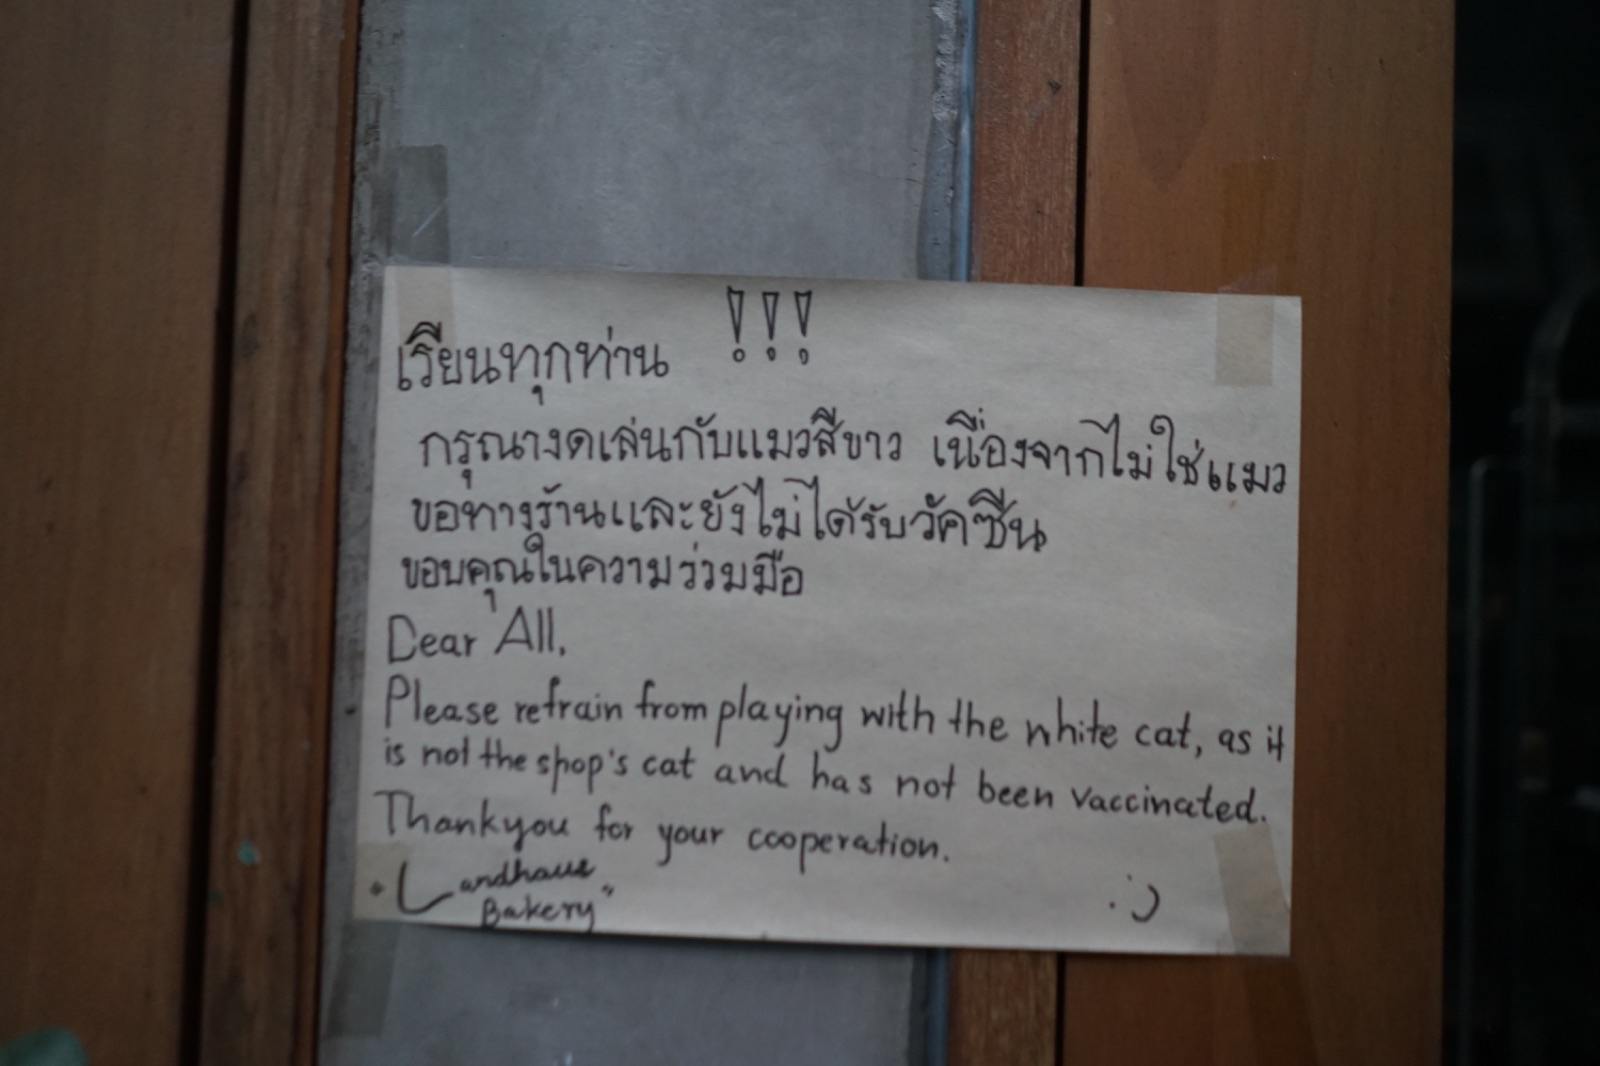 เรียนทุกท่าน !!!
กรุณางดเล่นกับแมวสีขาว เนื่องจากไม่ใช่แมว
ของทางร้านและยังไม่ได้รับวัคซีน
ขอบคุณในความร่วมมือ
Dear All,
Please refrain from playing with the white cat, as it
is not the shop's cat and has not been vaccinated.
Thankyou for your cooperation.
"Landhaus :)
Bakery"